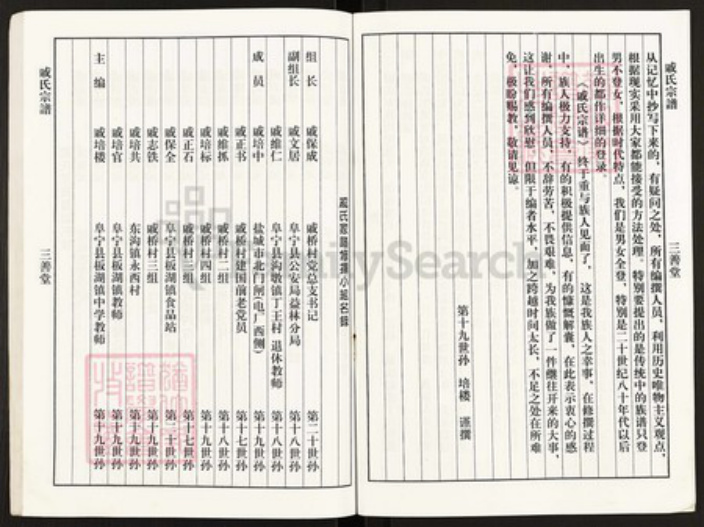 戚氏宗譜
三善堂
从记忆中抄写下来的，有疑问之处，所有编撰人员，利用历史唯物主义观点，
根据现实采用大家都能接受的方法处理。特别要提出的是传统中的族谱只登
男不登女，根据时代特点，我们是男女全登，特别是二十世纪八十年代以后
出生的都作详细的登录。
《戚氏宗谱》终于重与族人见面了，这是我族人之幸事，在修撰过程
中，族人极力支持，有的积极提供信息，有的慷慨解囊，在此表示衷心的感
谢，所有编撰人员，不辞劳苦，不畏艰难，为我族做了一件继往开来的大事，
这让我们感到欣慰，但限于编者水平，加之跨越时间太长，不足之处在所难
免，极盼赐教，敬请见谅。
第十九世孙 培楼 谨撰
戚氏家譜修撰小组名錄
组长 戚保成 戚桥村党总支书记 第二十世孙
副组长 戚文居 阜宁县公安局益林分局 第十八世孙
戚维仁 阜宁县沟墩镇丁王村 退休教师 第十八世孙
成员 戚培中 盐城市北门闸(电厂西侧) 第十九世孙
戚正书 戚桥村建国前老党员 第十七世孙
戚维拣 戚桥村二组 第十八世孙
戚培标 戚桥村四组 第十九世孙
戚正石 戚桥村三组 第十七世孙
戚保全 阜宁县板湖镇食品站 第二十世孙
戚志铁 戚桥村三组 第十九世孙
戚培共 东沟镇永西村 第十九世孙
戚培官 阜宁县板湖镇教师 第十九世孙
主编 戚培楼 阜宁县板湖镇中学教师 第十九世孙
戚氏宗譜
三善堂
FamilySearch